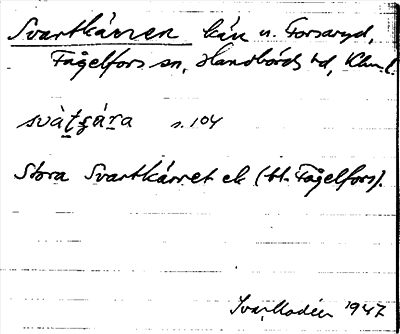 Svartkärren kän n. Forsaryd,
Fågelfors sn, Handbörds hd, Klm l.
svàt̯ɕára s. 104
Stora Svartkärret ek (bl. Fågelfors).
Ivar Modéer 1947